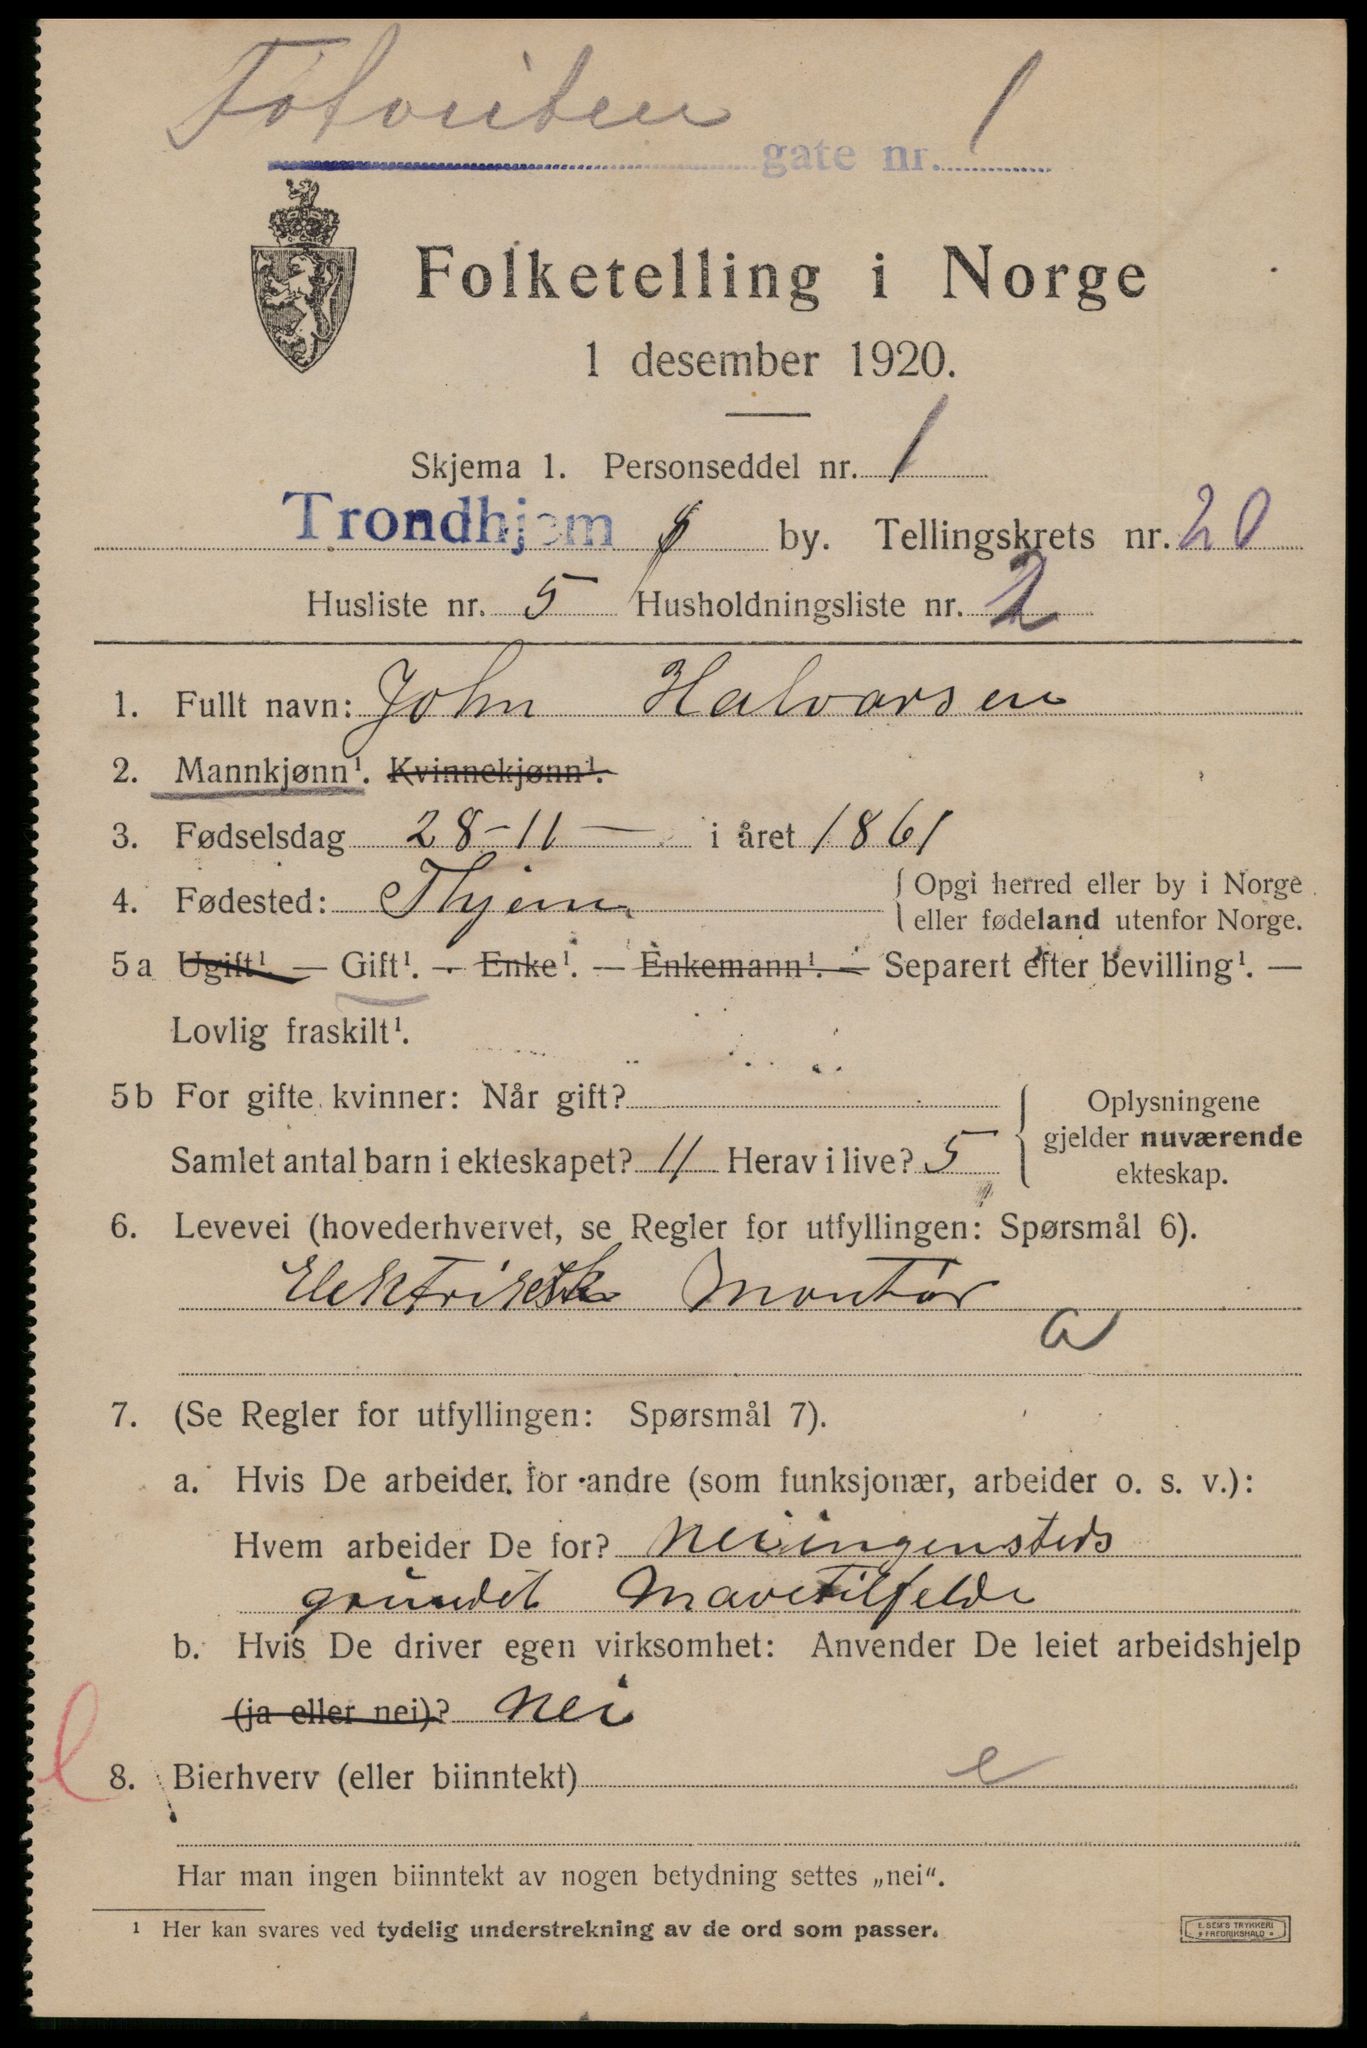 gate nr. 1
Folketelling i Norge
1 desember 1920.
Skjema 1. Personseddel nr. 1
Trondhjem by. Tellingskrets nr. 20
Husliste nr. 5 Husholdningsliste nr. 2
1. Fullt navn: John Halvorsen
2. Mannkjønn¹. Kvinnekjønn¹.
3. Fødselsdag 28-11- i året 1861
4. Fødested: Thjem { Opgi herred eller by i Norge
eller fødeland utenfor Norge.
5a Ugift¹. — Gift¹. — Enke¹. — Enkemann¹. — Separert efter bevilling¹. —
Lovlig fraskilt¹.
5b For gifte kvinner: Når gift?
Samlet antal barn i ekteskapet? 11 Herav i live? 5
Oplysningene
gjelder nuværende
ekteskap.
6. Levevei (hovederhvervet, se Regler for utfyllingen: Spørsmål 6).
Elektrisk Montør
a
7. (Se Regler for utfyllingen: Spørsmål 7).
a. Hvis De arbeider for andre (som funksjonær, arbeider o. s. v.):
Hvem arbeider De for? Nei ingensteds
grundet Mavetilfelde
b. Hvis De driver egen virksomhet: Anvender De leiet arbeidshjelp
(ja eller nei)? Nei
8. Bierhverv (eller biinntekt) e
Har man ingen biinntekt av nogen betydning settes „nei“.
¹ Her kan svares ved tydelig understrekning av de ord som passer.
E. SEM'S TRYKKERI
FREDRIKSHALD